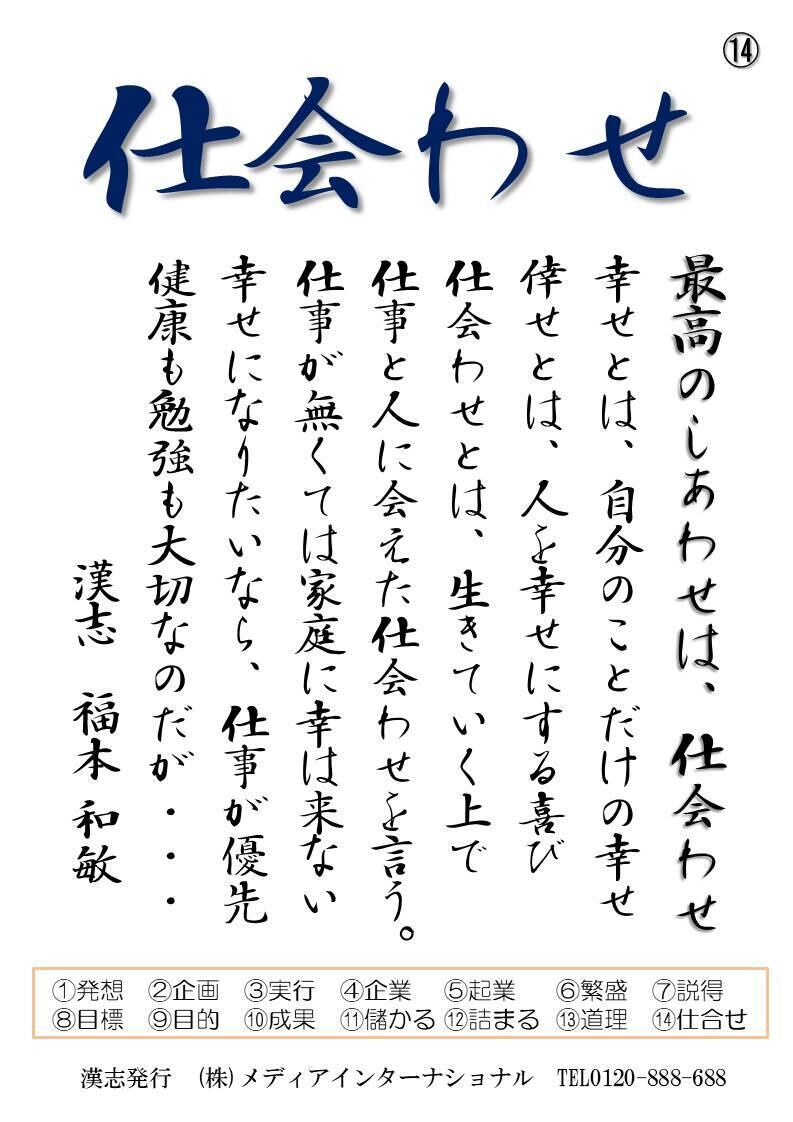 ⑭
仕会わせ
最高のしあわせは、仕会わせ
幸せとは、自分のことだけの幸せ
倖せとは、人を幸せにする喜び
仕会わせとは、生きていく上で
仕事と人に会えた仕会わせを言う。
仕事が無くては家庭に幸は来ない
幸せになりたいなら、仕事が優先
健康も勉強も大切なのだが・・・
漢志 福本 和敏
①発想 ②企画 ③実行 ④企業 ⑤起業 ⑥繁盛 ⑦説得
⑧目標 ⑨目的 ⑩成果 ⑪儲かる ⑫詰まる ⑬道理 ⑭仕合せ
漢志発行 (株)メディアインターナショナル TEL0120-888-688